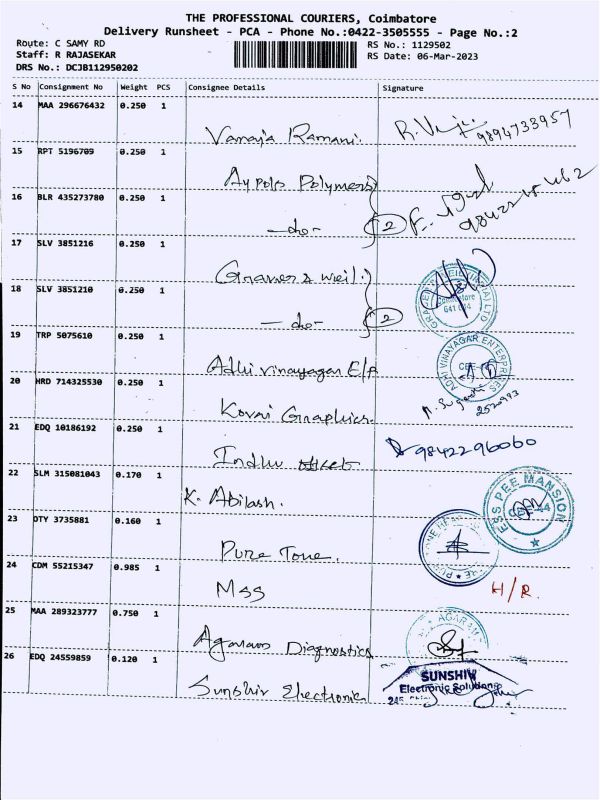 THE PROFESSIONAL COURIERS, Coimbatore
Delivery Runsheet - PCA - Phone No.:0422-3505555 - Page No.:2
Route: C SAMY RD
Staff: R RAJASEKAR
DRS No.: DCJB112950202
RS No.: 1129502
RS Date: 06-Mar-2023
S No Consignment No Weight PCS Consignee Details Signature
14 MAA 296676432 0.250 1
Vanaja Ramani.
9894733957
15 RPT 5196709 0.250 1
Aypols Polymers
16 BLR 435273780 0.250 1
-do- 2
17 SLV 3851216 0.250 1
Grauers weil.
18 SLV 3851210 0.250 1
-do- 2
19 TRP 5075610 0.250 1
Adhi vinayagar E/P
ADHI VINAYAGAR ENTERPRISES
20 HRD 714325530 0.250 1
Kovai Graphics.
21 EDQ 10186192 0.250 1
Indhu
9842296060
22 SLM 315081043 0.170 1
K. Abilash.
ESS PEE MANSION
23 DTY 3735881 0.160 1
Pure Tone.
24 CDM 55215347 0.985 1
MSS
H/R.
25 MAA 289323777 0.750 1
Agaram Diagnostics
26 EDQ 24559859 0.120 1
Sunshiv Electronic
SUNSHIV
Electronic Solutions